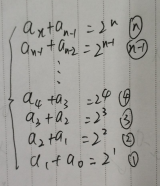 aₙ+aₙ₋₁=2ⁿ ⓝ
aₙ₋₁+aₙ₋₂=2ⁿ⁻¹ (n-1)
⋮
a₄+a₃=2⁴ ④
a₃+a₂=2³ ③
a₂+a₁=2² ②
a₁+a₀=2¹ ①